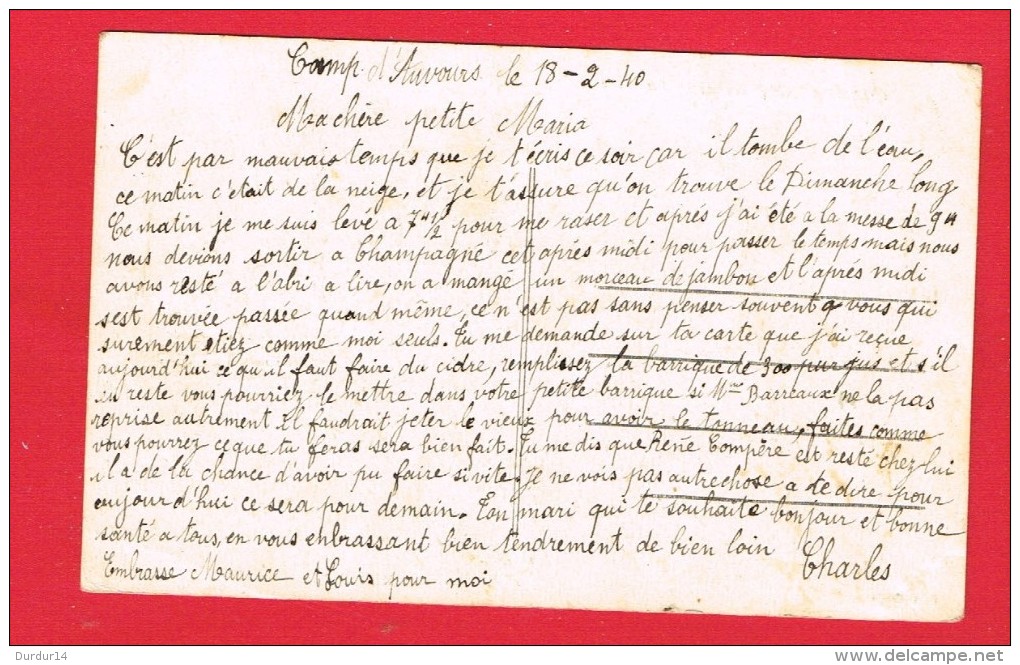 Camp d'Auvours le 18-2-40
Machère petite Maria
C'est par mauvais temps que je t'écris ce soir car il tombe de l'eau,
ce matin c'était de la neige, et je t'assure qu'on trouve le Dimanche long
Ce matin je me suis levé a 7h½ pour me raser et après j'ai été a la messe de 9h
nous devions sortir a Champagné cet après midi pour passer le temps mais nous
avons resté a l'abri a lire, on a mangé un morceau de jambon et l'après midi
sest trouvée passée quand même, ce n'est pas sans penser souvent a vous qui
surement etiez comme moi seuls. Tu me demande sur ta carte que j'ai reçue
aujourd'hui ce qu'il faut faire du cidre, remplissez la barrique de 300 pur jus et s'il
en reste vous pourriez le mettre dans votre petite barrique si Mme Barreaux ne la pas
reprise autrement il faudrait jeter le vieux pour avoir le tonneau, faites comme
vous pourrez ce que tu feras sera bien fait. Tu me dis que René Compère est resté chez lui
il a de la chance d'avoir pu faire si vite. Je ne vois pas autre chose a te dire pour
aujourd'hui ce sera pour demain. Ton mari qui te souhaite bonjour et bonne
santé a tous, en vous enbrassant bien tendrement de bien loin Charles
Embrasse Maurice et Louis pour moi
Durdur14
delcampe.net